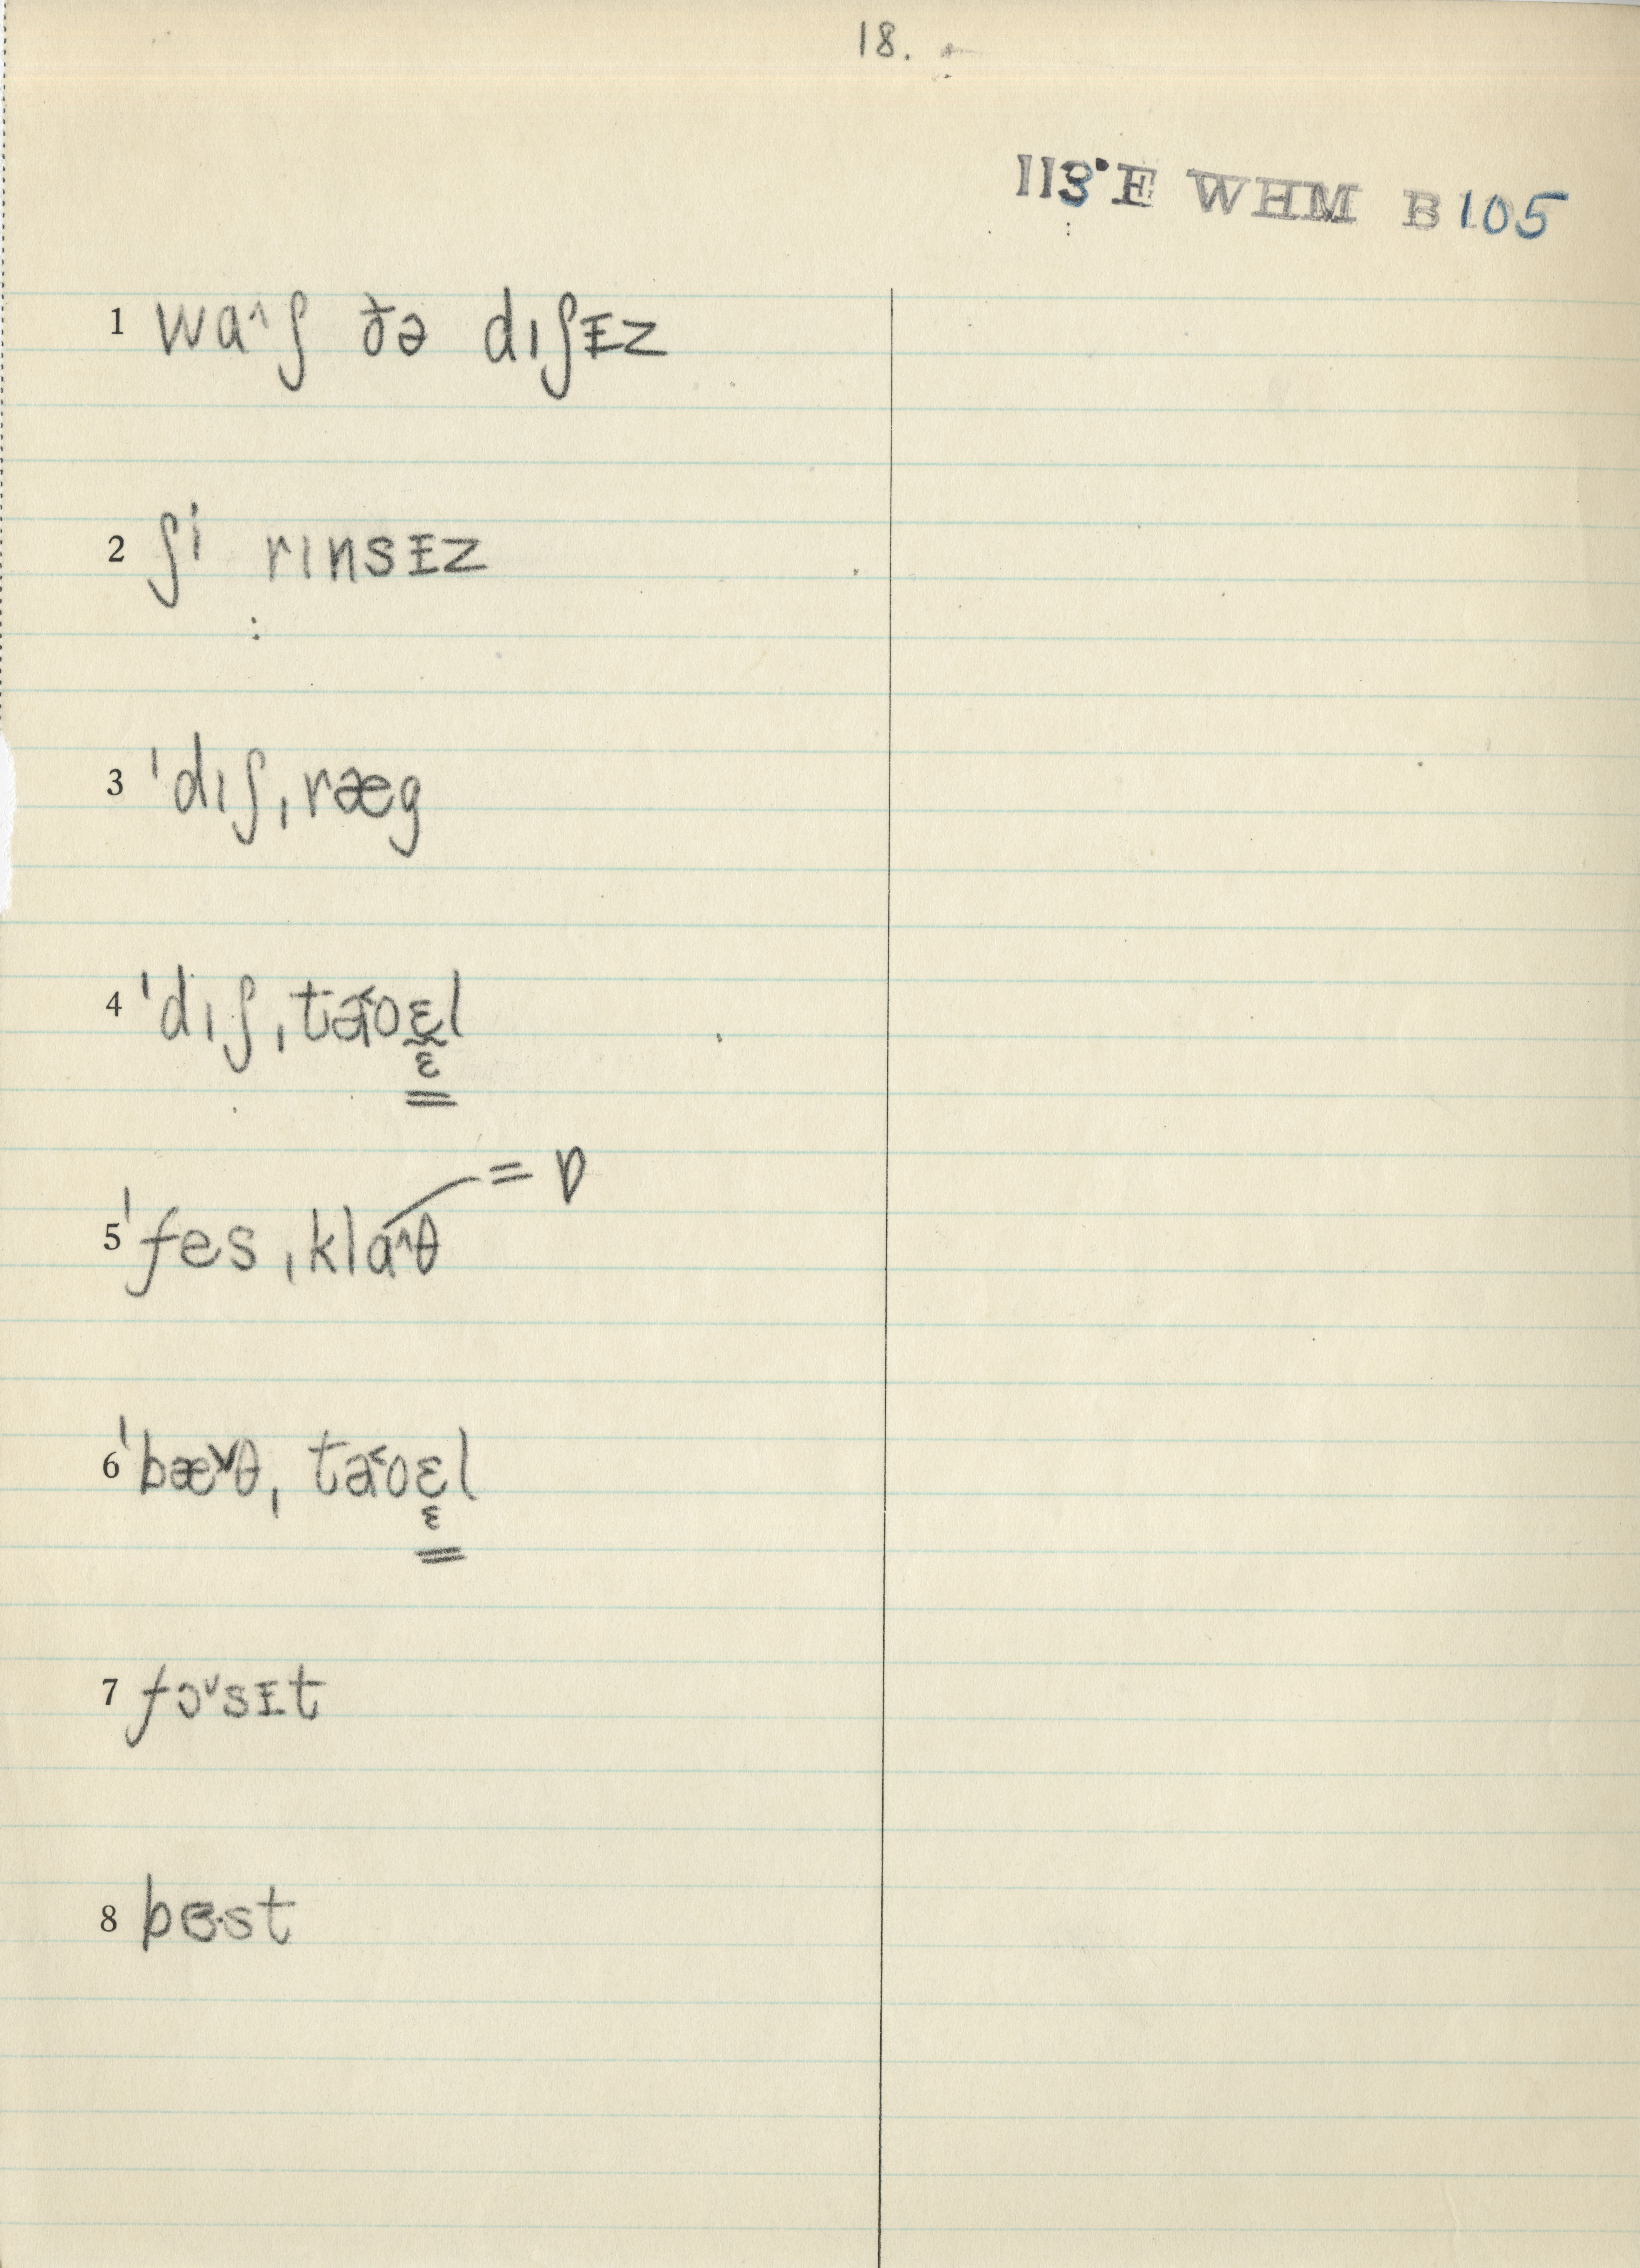 18.
113.E WHM B105
1 wɑ^ʃ ðə dıʃɪz
2 ʃi rınsɪz
3 ˈdıʃˌræg
4 ˈdıʃˌta˂oɛl
ɛ
=
= ɒ
5 ˈfesˌklɑ^θ
6 ˈbæ˅θˌta˂oɛl
ɛ
=
7 fɔ˅sɪt
8 bɛ·st